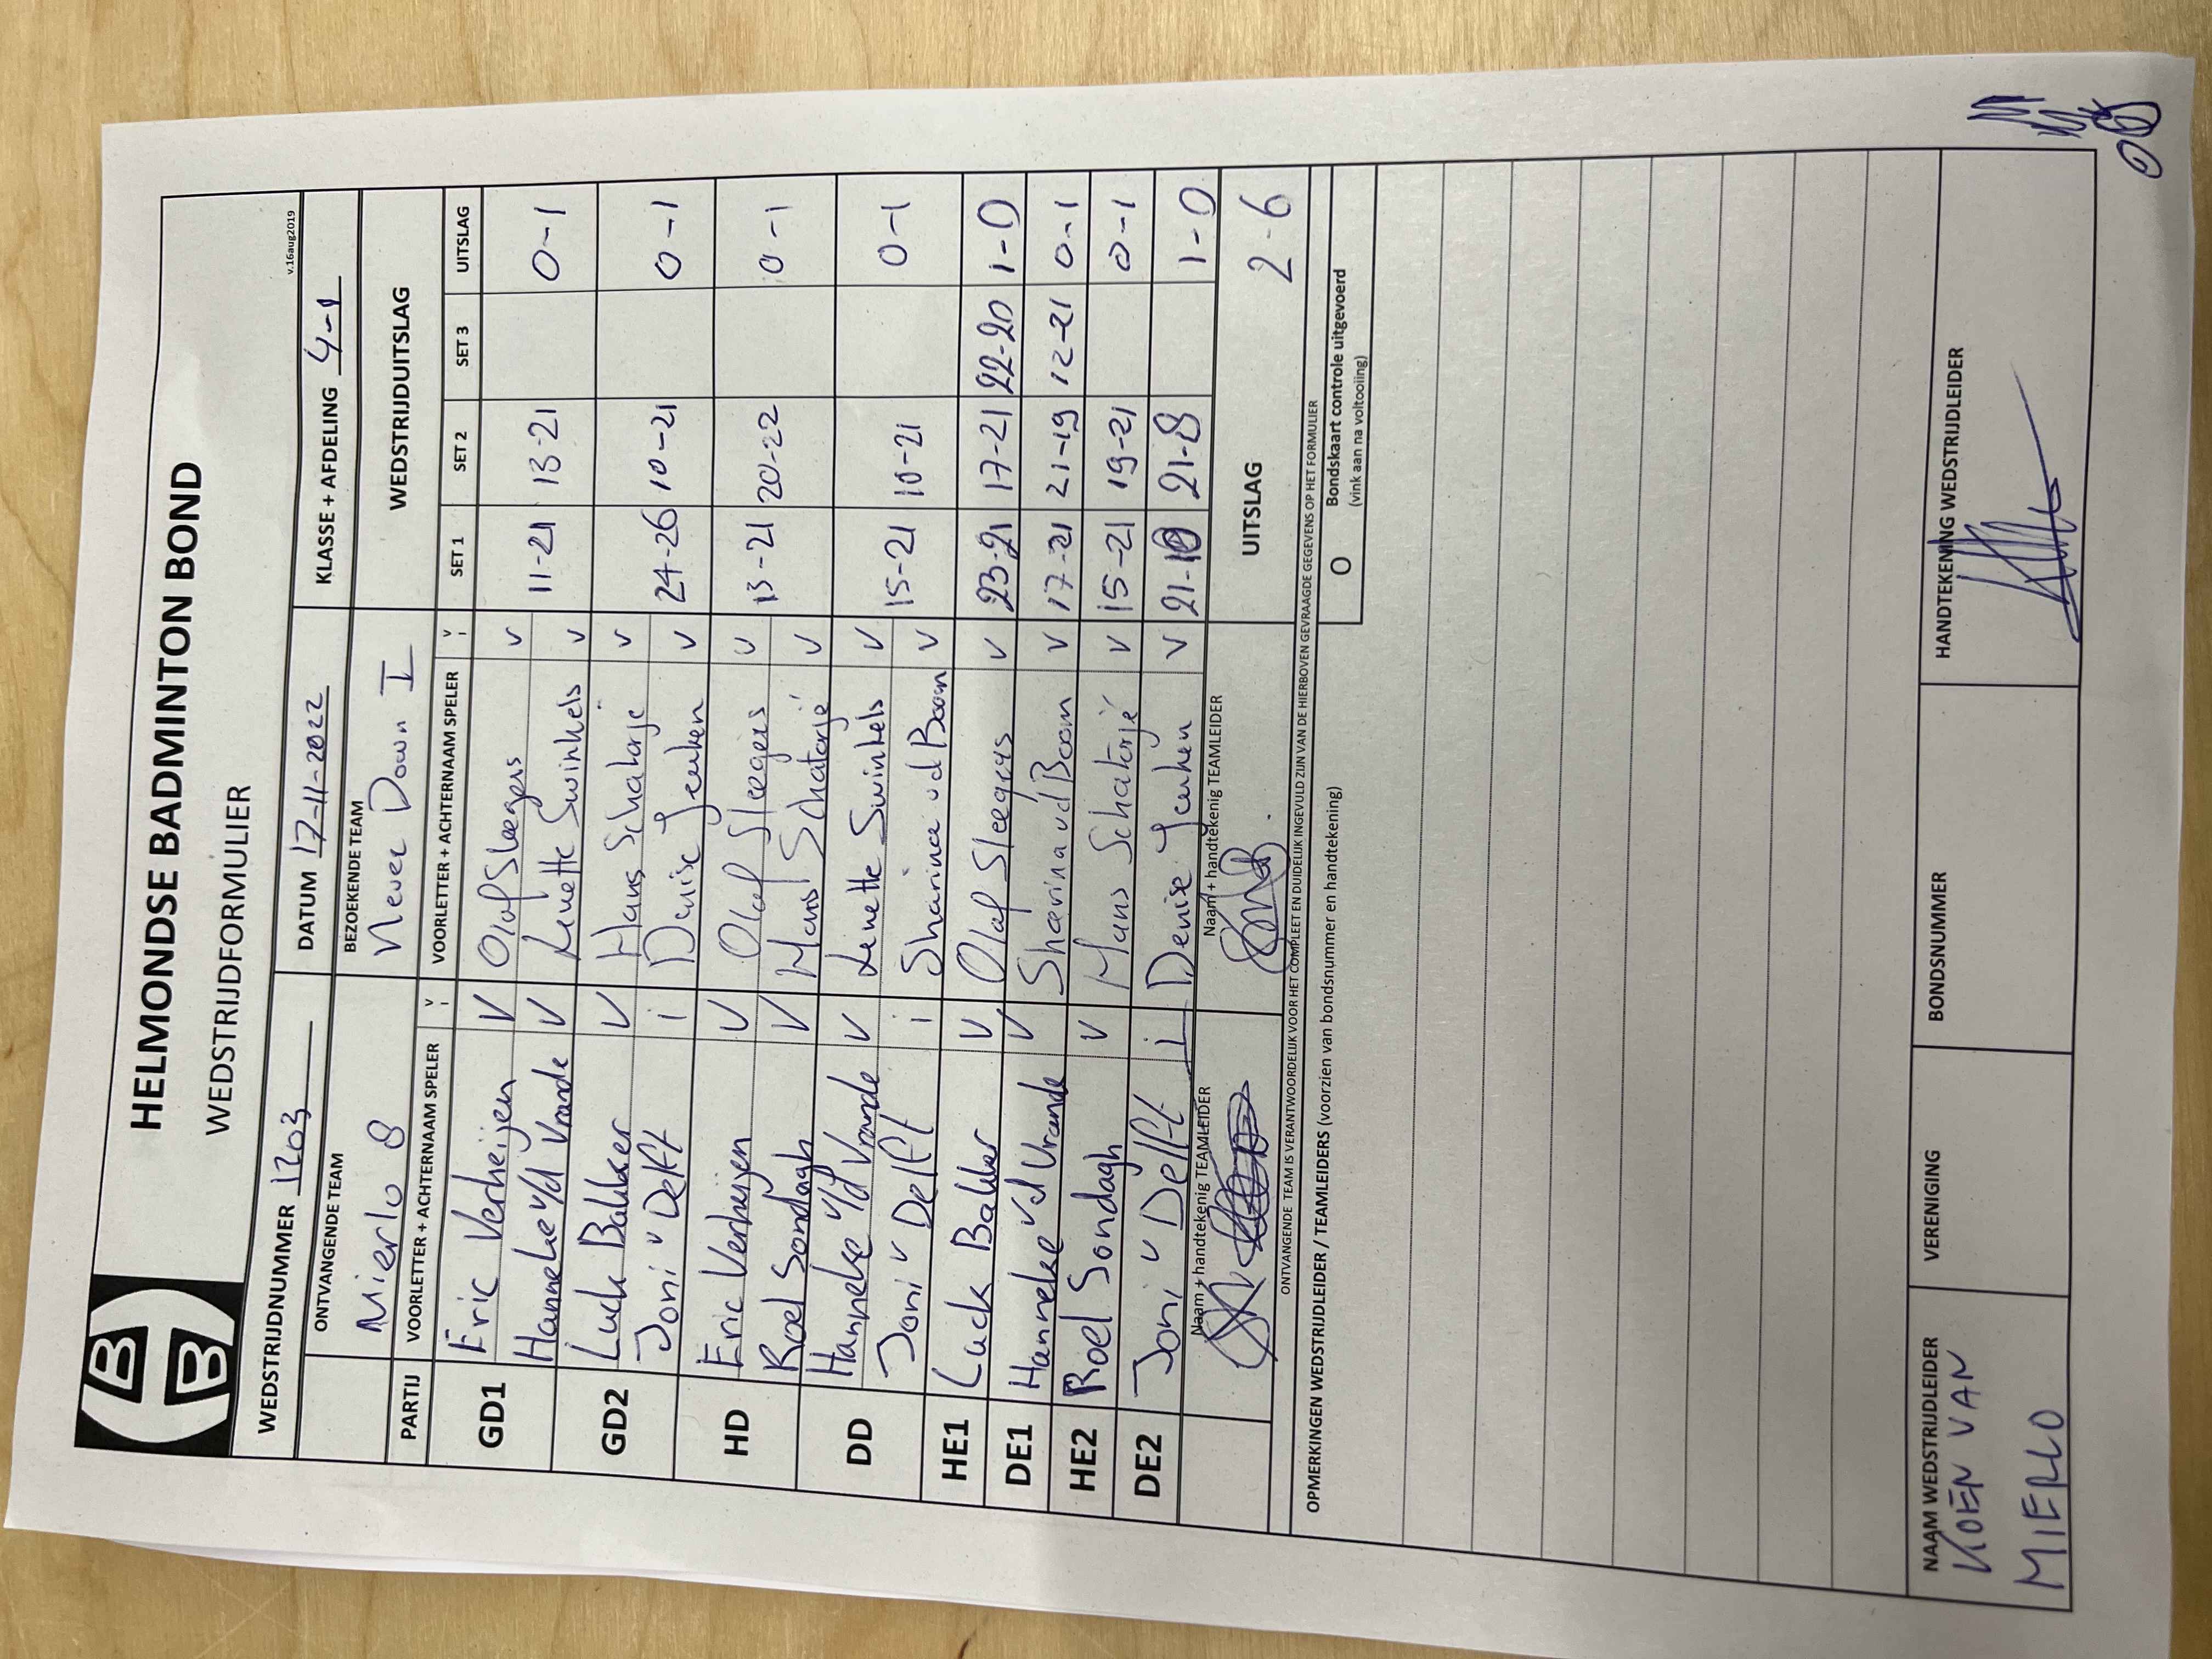 HBB
HELMONDSE BADMINTON BOND
WEDSTRIJDFORMULIER
v.16aug2019
WEDSTRIJDNUMMER 1203 DATUM 17-11-2022 KLASSE + AFDELING 4-1
ONTVANGENDE TEAM BEZOEKENDE TEAM WEDSTRIJDUITSLAG
Mierlo 8 Never Down I
PARTIJ VOORLETTER + ACHTERNAAM SPELER V i VOORLETTER + ACHTERNAAM SPELER V i SET 1 SET 2 SET 3 UITSLAG
GD1 Eric Verheijen V Olaf Sleegers v 11-21 13-21 0-1
Hanneke v/d Vrande V Linette Swinkels v
GD2 Luck Bakker V Hans Schatorje v 24-26 10-21 0-1
Joni v Delft i Denise Jeuken v
HD Eric Verheijen V Olaf Sleegers v 13-21 20-22 0-1
Roel Sondagh V Hans Schatorjé v
DD Hanneke v/d Vrande V Linette Swinkels v 15-21 10-21 0-1
Joni v Delft i Sharina vd Boom v
HE1 Luck Bakker V Olaf Sleegers v 23-21 17-21 22-20 1-0
DE1 Hanneke vd Vrande V Sharina vd Boom v 17-21 21-19 12-21 0-1
HE2 Roel Sondagh V Hans Schatorjé v 15-21 19-21 0-1
DE2 Joni v Delft i Denise Jeuken v 21-10 21-8 1-0
Naam + handtekenig TEAMLEIDER Naam + handtekenig TEAMLEIDER UITSLAG 2-6
ONTVANGENDE TEAM IS VERANTWOORDELIJK VOOR HET COMPLEET EN DUIDELIJK INGEVULD ZIJN VAN DE HIERBOVEN GEVRAAGDE GEGEVENS OP HET FORMULIER
OPMERKINGEN WEDSTRIJDLEIDER / TEAMLEIDERS (voorzien van bondsnummer en handtekening)
O Bondskaart controle uitgevoerd
(vink aan na voltooiing)
NAAM WEDSTRIJDLEIDER VERENIGING BONDSNUMMER HANDTEKENING WEDSTRIJDLEIDER
KOEN VAN
MIERLO